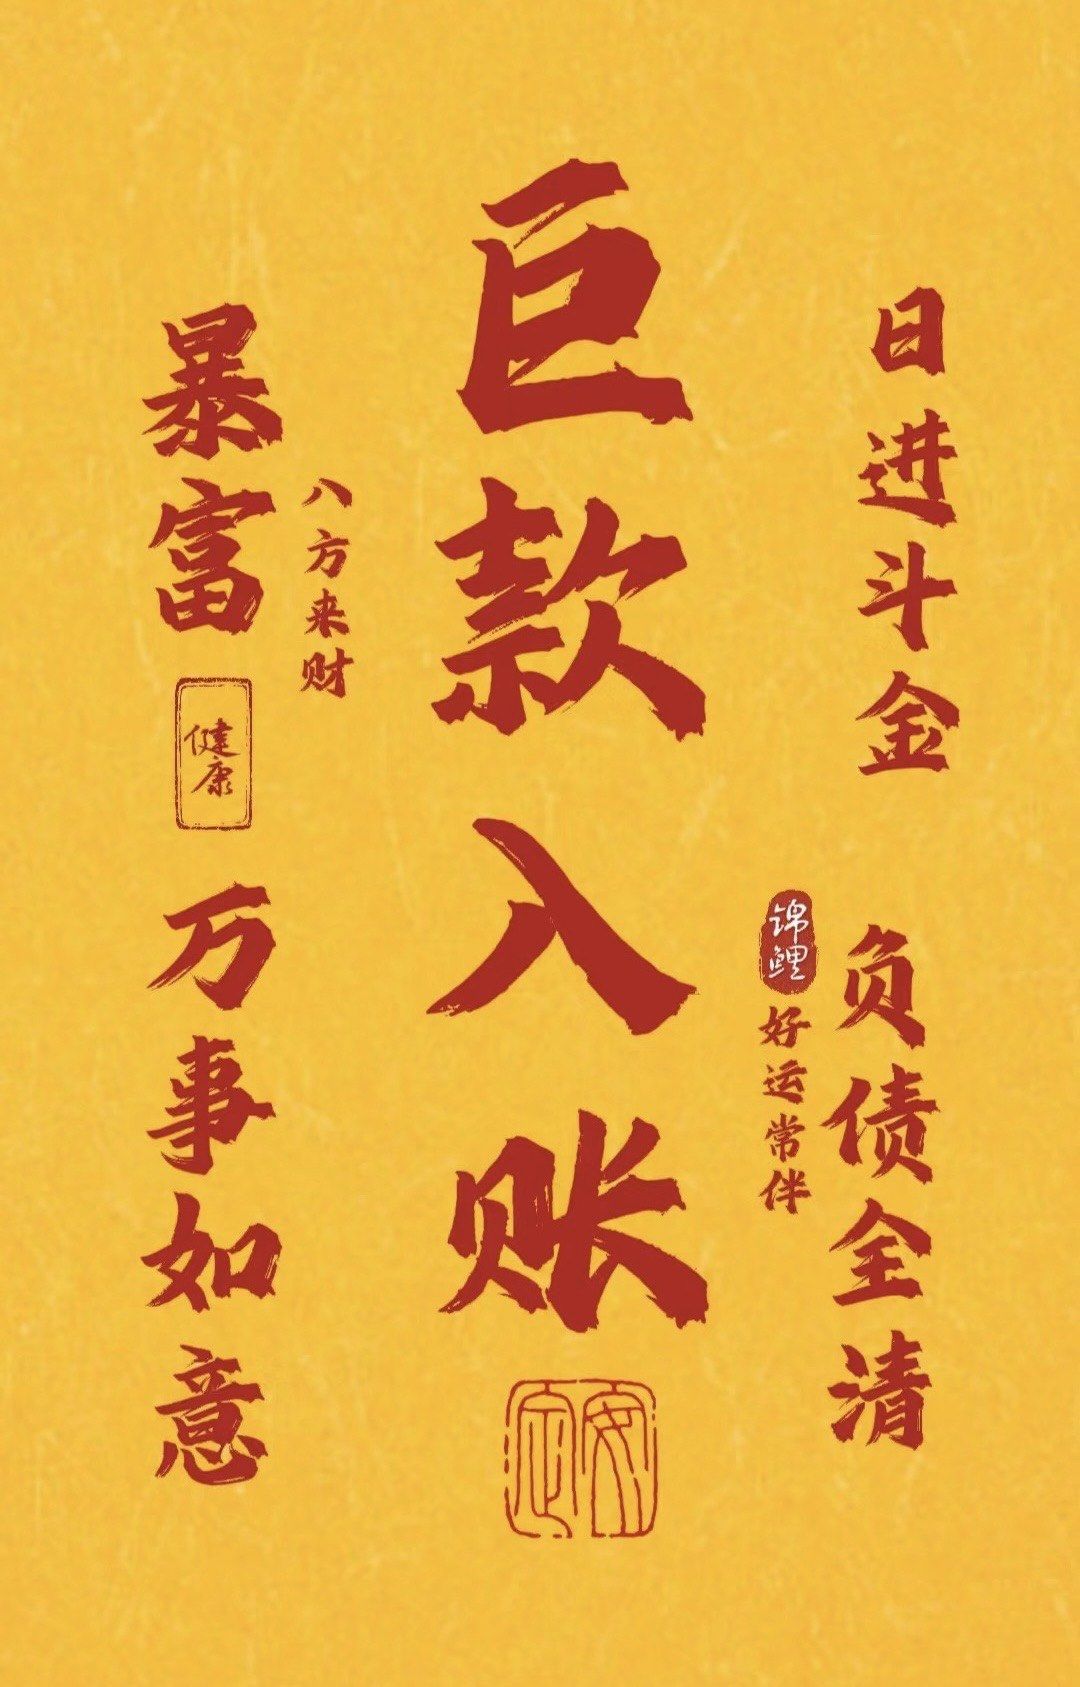 日进斗金
负债全清
锦鲤
好运常伴
巨款入账
安定
八方来财
暴富
健康
万事如意